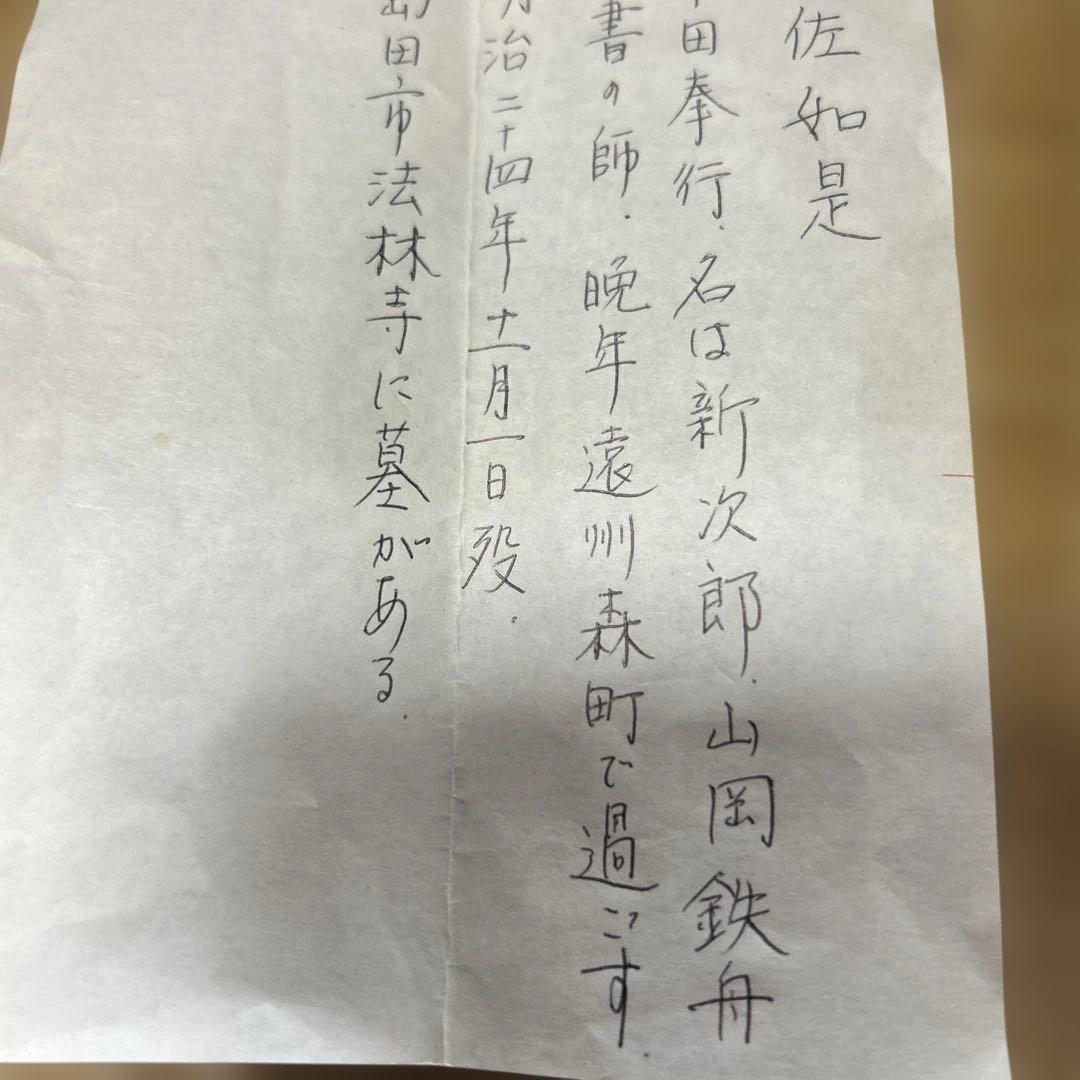 佐如是
田奉行．名は新次郎．山岡鉄舟
書の師．晩年遠州森町で過ごす．
明治二十四年十一月一日歿．
島田市法林寺に墓がある．